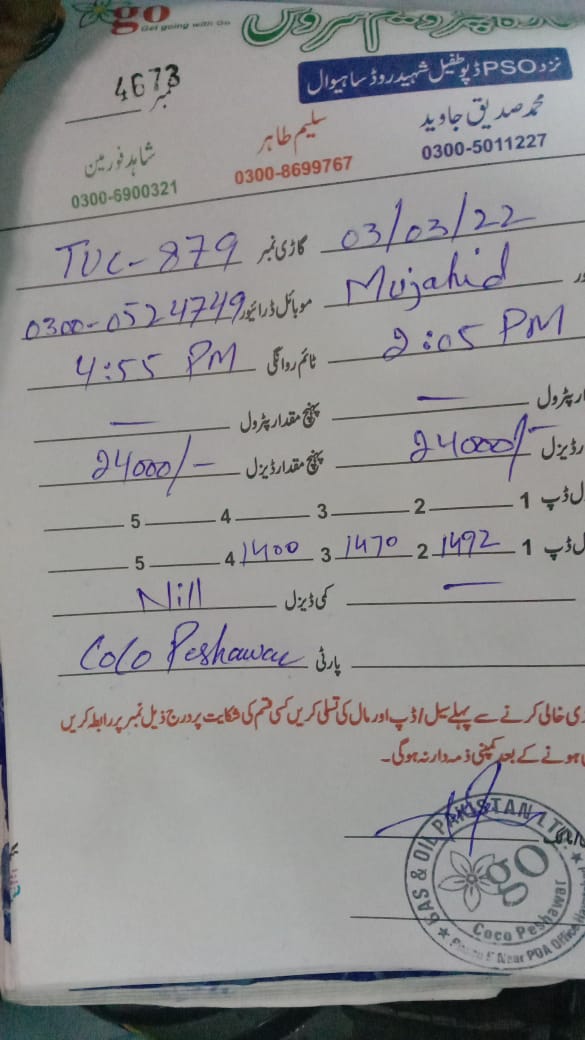 go
Get going with Go
پٹرولیم سروس
نزد PSO ڈپو طفیل شہید روڈ ساہیوال
4673 نمبر
محمد صدیق جاوید
0300-5011227
سلیم طاہر
0300-8699767
شاہد فورمین
0300-6900321
03/03/22 گاڑی نمبر TUC-879
Mujahid موبائل ڈرائیور 0300-0524749
2:05 PM ٹائم روانگی 4:55 PM
پٹرول — پہنچ مقدار پٹرول —
24000/- پہنچ مقدار ڈیزل 24000/-
ڈپ 1 2 3 4 5
ڈپ 1 1492 2 1470 3 1400 4 5
— کمی ڈیزل Nill
پارٹی CoCo Peshawar
خالی کرنے سے پہلے سیل / ڈپ اور مال کی تسلی کریں کسی قسم کی شکایت پر درج ذیل نمبر پر رابطہ کریں
ہونے کے بعد کمپنی ذمہ دار نہ ہوگی۔
GAS & OIL PAKISTAN LTD.
go
Coco Peshawar
Near PDA Office